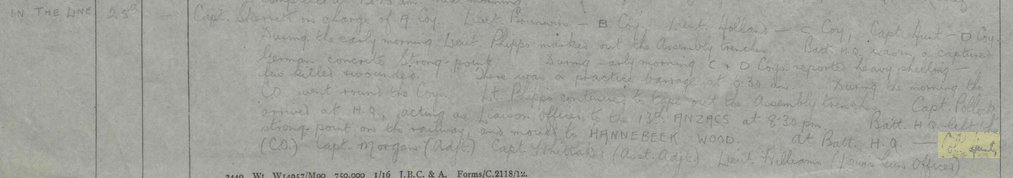 IN THE LINE 25 — Capt. Skerrett in charge of A Coy. Lieut — B Coy. Lieut Holland — C Coy, Capt. Hunt — D Coy.
During the early morning Lieut. Phipps marked out the Assembly trenches. Batt. H.Q. was in a captured
German concrete strong-point. During early morning C & D Coys reported heavy shelling —
few killed & wounded. There was a practice barrage at 5.30 am. During the morning the
CO. went round the Coys. Lt. Phipps continued to tape out the Assembly trenches. Capt.
arrived at H.Q., acting as Liaison Officer to the 13th ANZACS at 8.30 pm. Batt. H.Q. left the
strong point on the railway, and moved to HANNEBECK WOOD. at Batt. H.Q. —
(CO.) Capt. Morgan (Adjt) Capt Whittaker (Asst Adjt) Lieut Williams (Lewis Gun Officer)
2449 Wt. W14957/M90 750,000 1/16 J.B.C. & A. Forms/C.2118/12.